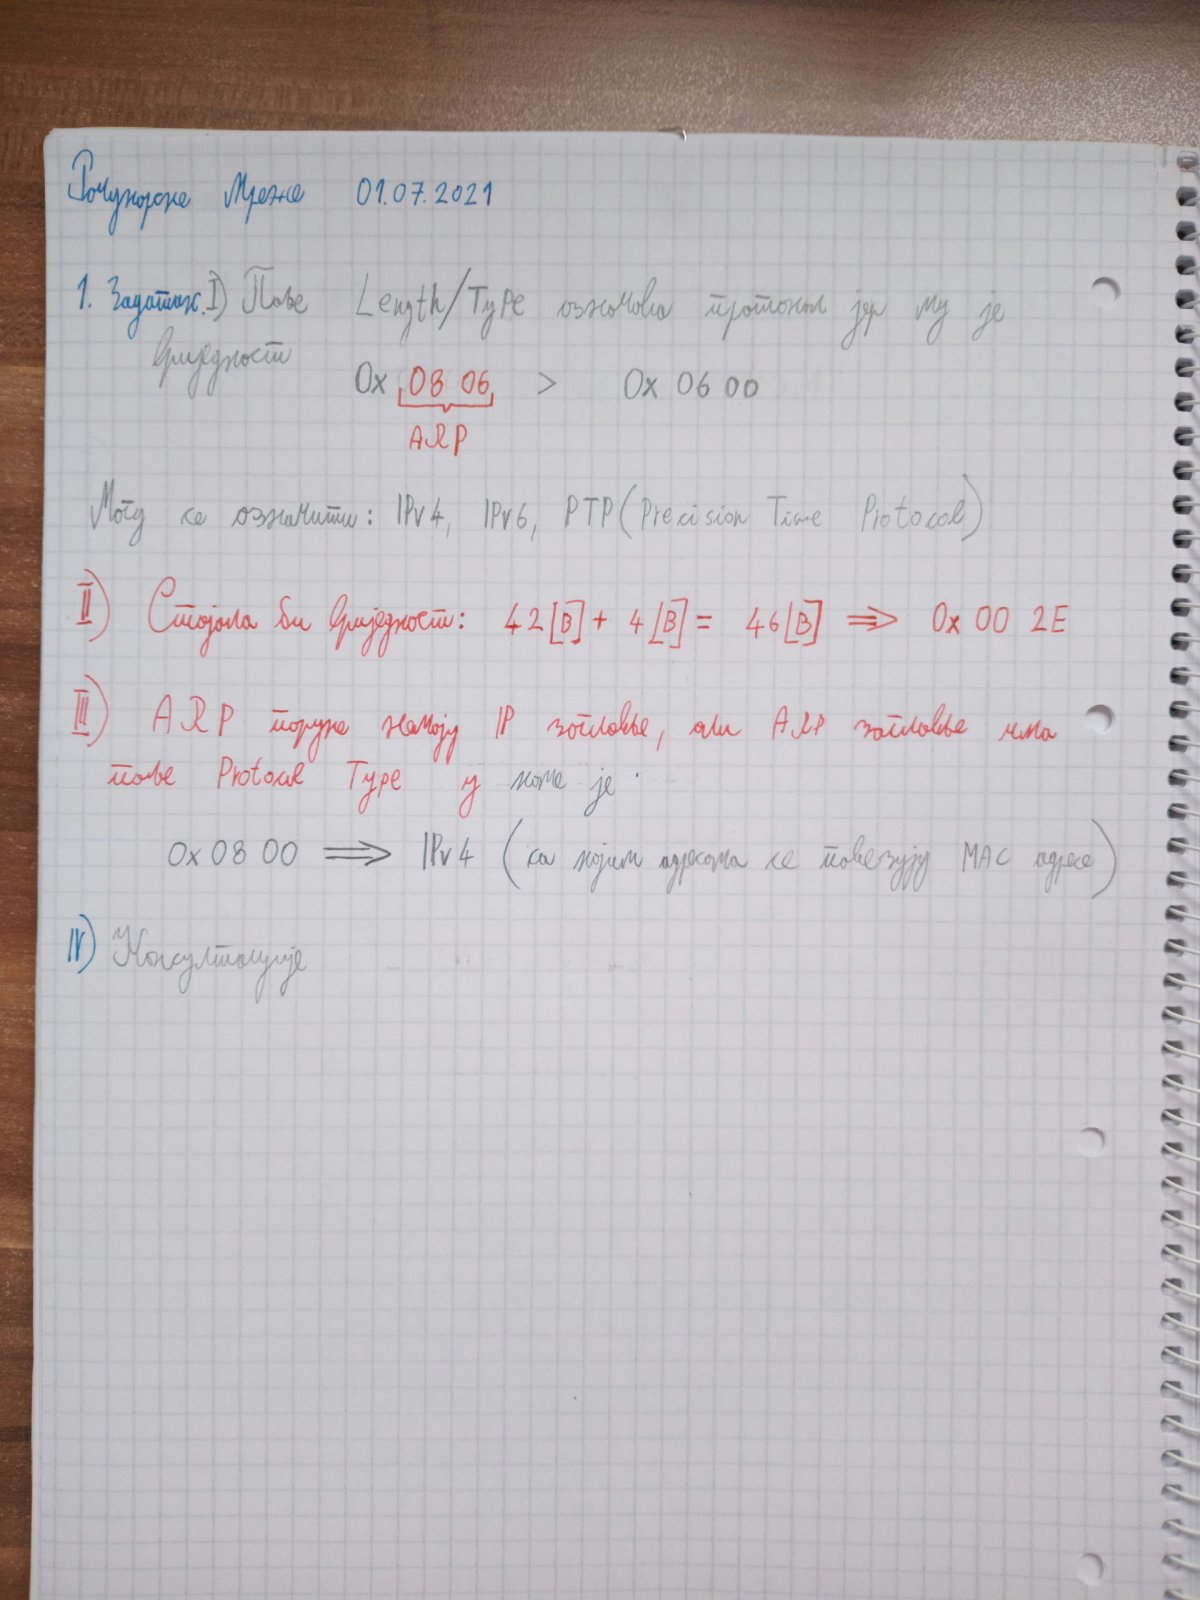 Рачунарске Мреже 01.07.2021
1. Задатак. I) Поље Length/Type означава протокол јер му је
вриједност
0x 08 06 > 0x 06 00
ARP
Могу се означити: IPv4, IPv6, PTP (Precision Time Protocol)
II) Стајала би вриједност: 42[B] + 4[B] = 46[B] ⇒ 0x 00 2E
III) ARP поруке немају IP заглавље, али ARP заглавље има
поље Protocol Type у коме је:
0x 08 00 ⇒ IPv4 (са којим адресама се повезују MAC адресе)
IV) Консултације